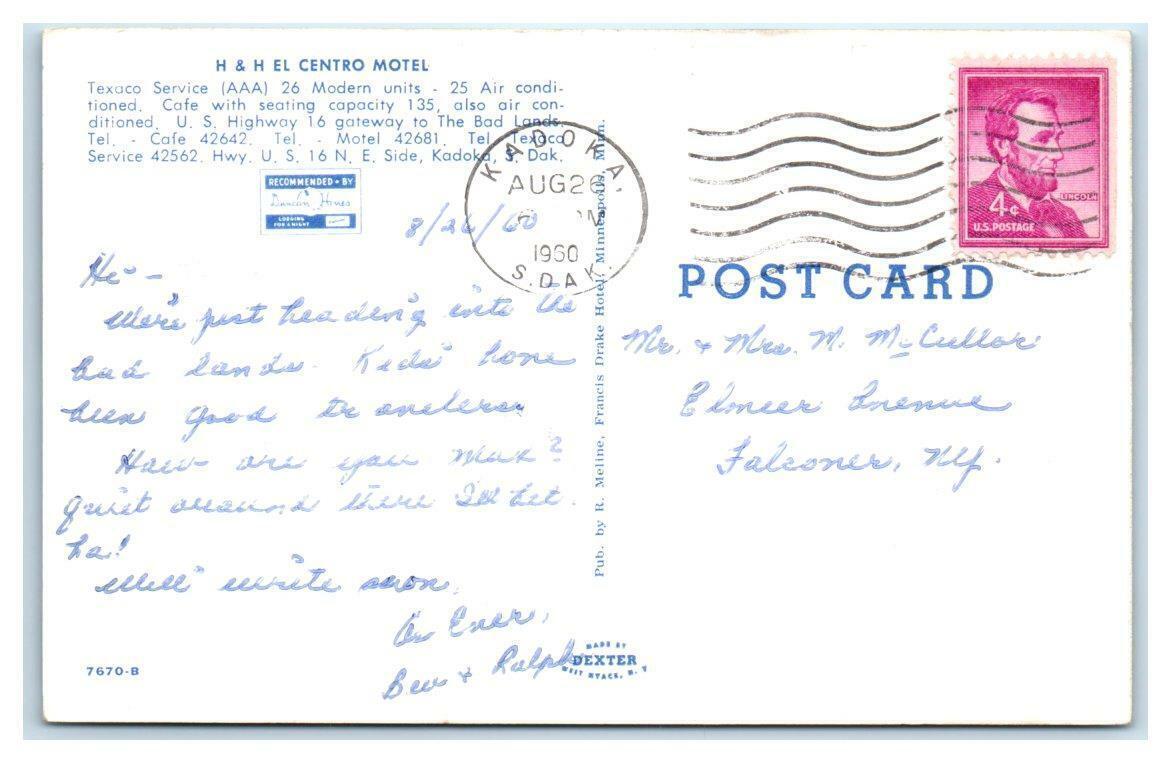 H & H EL CENTRO MOTEL
Texaco Service (AAA) 26 Modern units - 25 Air condi-
tioned. Cafe with seating capacity 135, also air con-
ditioned. U. S. Highway 16 gateway to The Bad Lands.
Tel. - Cafe 42642. Tel. - Motel 42681. Tel. Texaco
Service 42562. Hwy. U. S. 16 N. E. Side, Kadoka, S. Dak.
RECOMMENDED • BY
Duncan Hines
LODGING
FOR A NIGHT
8/26/60
Hi -
We're just heading into the
bad lands. Kids have
been good travelers.
How are you Max?
Quiet around there I'll bet.
ha!
Will write soon,
As Ever,
Bev & Ralph
7670-B
KADOKA,
AUG 26
PM
1960
S. DAK.
Pub. by R. Meline, Francis Drake Hotel, Minneapolis, Minn.
MADE BY
DEXTER
WEST NYACK, N. Y.
LINCOLN
4¢
U.S. POSTAGE
POST CARD
Mr. & Mrs. M. McCullor
Avenue
Falconer, N.Y.